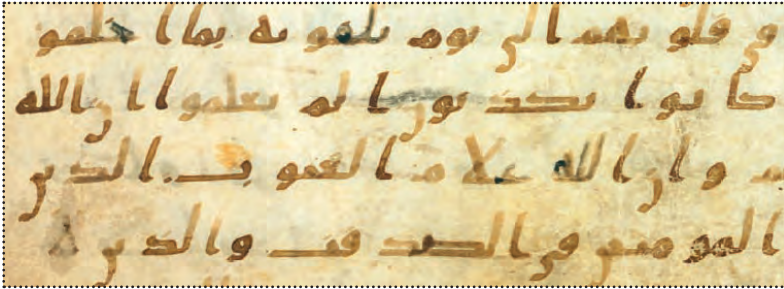 في قلوبهم الى يوم يلقونه بما اخلفو
كانوا يكذبون الم يعلموا ان الله
م وان الله علام الغيوب الذين
المومنين في الصدقت والذين لا